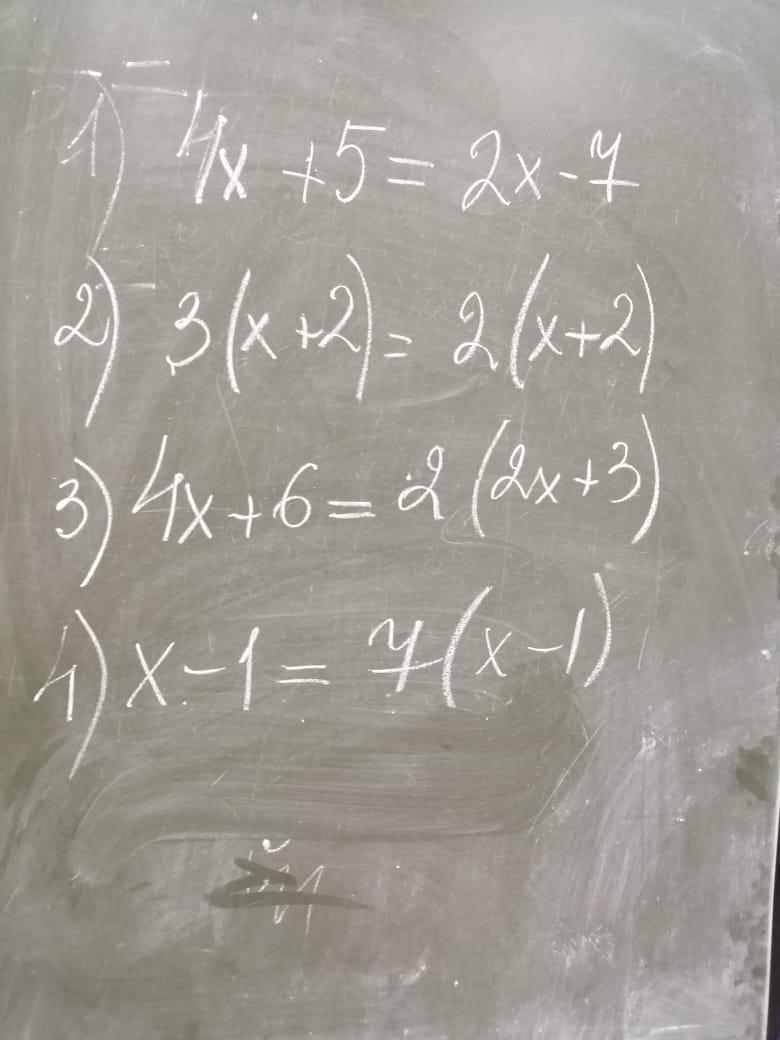 1) 4x + 5 = 2x - 7
2) 3(x+2) = 2(x+2)
3) 4x+6 = 2(2x+3)
4) x-1 = 7(x-1)